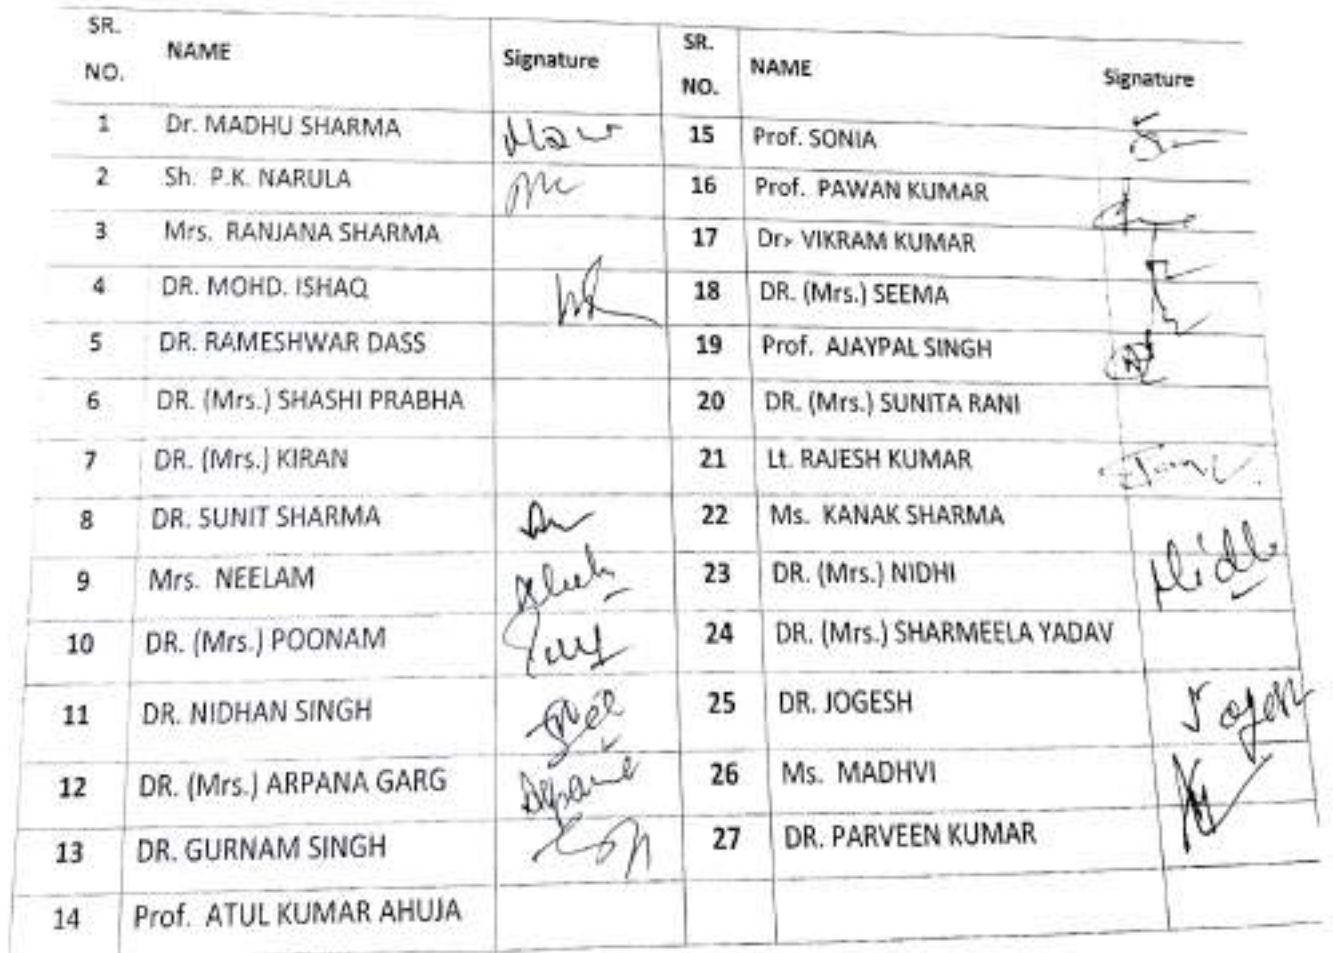 SR. NO. NAME Signature SR. NO. NAME Signature
1 Dr. MADHU SHARMA 15 Prof. SONIA
2 Sh. P.K. NARULA 16 Prof. PAWAN KUMAR
3 Mrs. RANJANA SHARMA 17 Dr. VIKRAM KUMAR
4 DR. MOHD. ISHAQ 18 DR. (Mrs.) SEEMA
5 DR. RAMESHWAR DASS 19 Prof. AJAYPAL SINGH
6 DR. (Mrs.) SHASHI PRABHA 20 DR. (Mrs.) SUNITA RANI
7 DR. (Mrs.) KIRAN 21 Lt. RAJESH KUMAR
8 DR. SUNIT SHARMA 22 Ms. KANAK SHARMA
9 Mrs. NEELAM 23 DR. (Mrs.) NIDHI Nidhi
10 DR. (Mrs.) POONAM 24 DR. (Mrs.) SHARMEELA YADAV
11 DR. NIDHAN SINGH 25 DR. JOGESH Jogesh
12 DR. (Mrs.) ARPANA GARG Arpana 26 Ms. MADHVI
13 DR. GURNAM SINGH 27 DR. PARVEEN KUMAR
14 Prof. ATUL KUMAR AHUJA